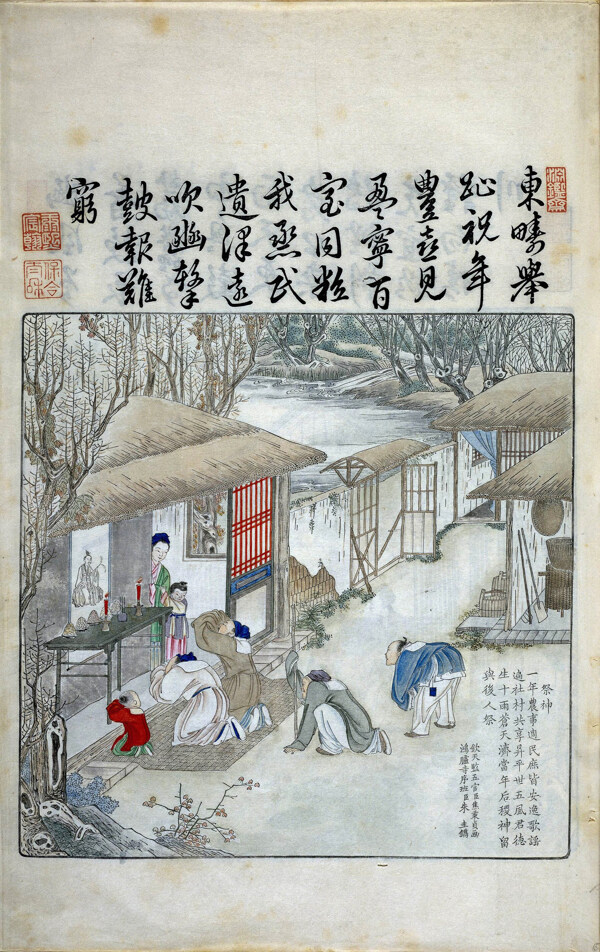 淵鑒齋
東疇舉
趾祝年
豐喜見
盈寧百
室同粒
我烝民
遺澤遠
吹豳擊
鼓報難
窮
康熙宸翰
保合太和
祭神
一年農事週民庶皆安逸歌謠
遍社村共享昇平世五風君德
生十雨蒼天濟當年后稷神留
與後人祭
欽天監五官臣焦秉貞画
鴻臚寺序班臣朱圭鐫